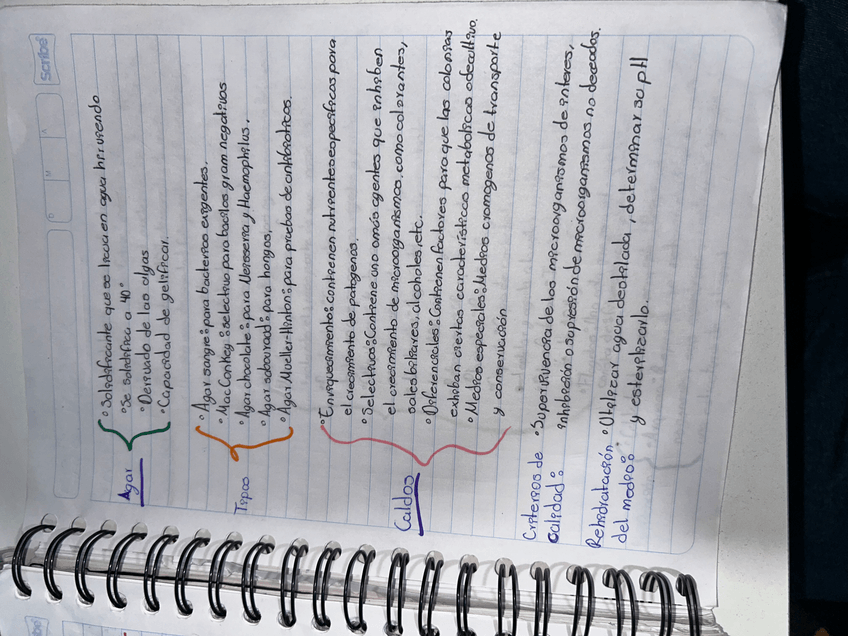 Scribe
D M A
Agar
° Solidificante que se licua en agua hirviendo
° Se solidifica a 40°
° Derivado de las algas
° Capacidad de gelificar.
Tipos
° Agar sangre: para bacterias exigentes.
° Mac Conkey: selectivo para bacilos gram negativos
° Agar chocolate: para Neisseria y Haemophilus.
° Agar sabouraud: para hongos.
° Agar Mueller-Hinton: para pruebas de antibioticos.
Caldos
° Enriquecimiento: contienen nutrientes especificos para
el crecimiento de patogenos.
° Selectivos: Contiene uno o más agentes que inhiben
el crecimiento de microorganismos, como colorantes,
sales biliares, alcoholes, etc.
° Diferenciales: Contienen factores para que las colonias
exhiban ciertas características metabolicas o de cultivo.
° Medios especiales: Medios cromogenos de transporte
y conservación
Criterios de calidad:
° Supervivencia de los microorganismos de interes,
inhibición o supresión de microorganismos no deseados.
Rehidratación del medio:
° Utilizar agua destilada, determinar su pH
y esterilizarlo.